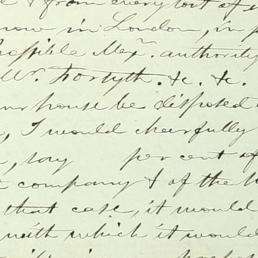 & from every
in London, in
possible Mexn. authority
Mr. Forsyth. &c. &c.
house be disposed
, I would cheerfully
, say per cent of
company & of the
that case, it would
with which it would